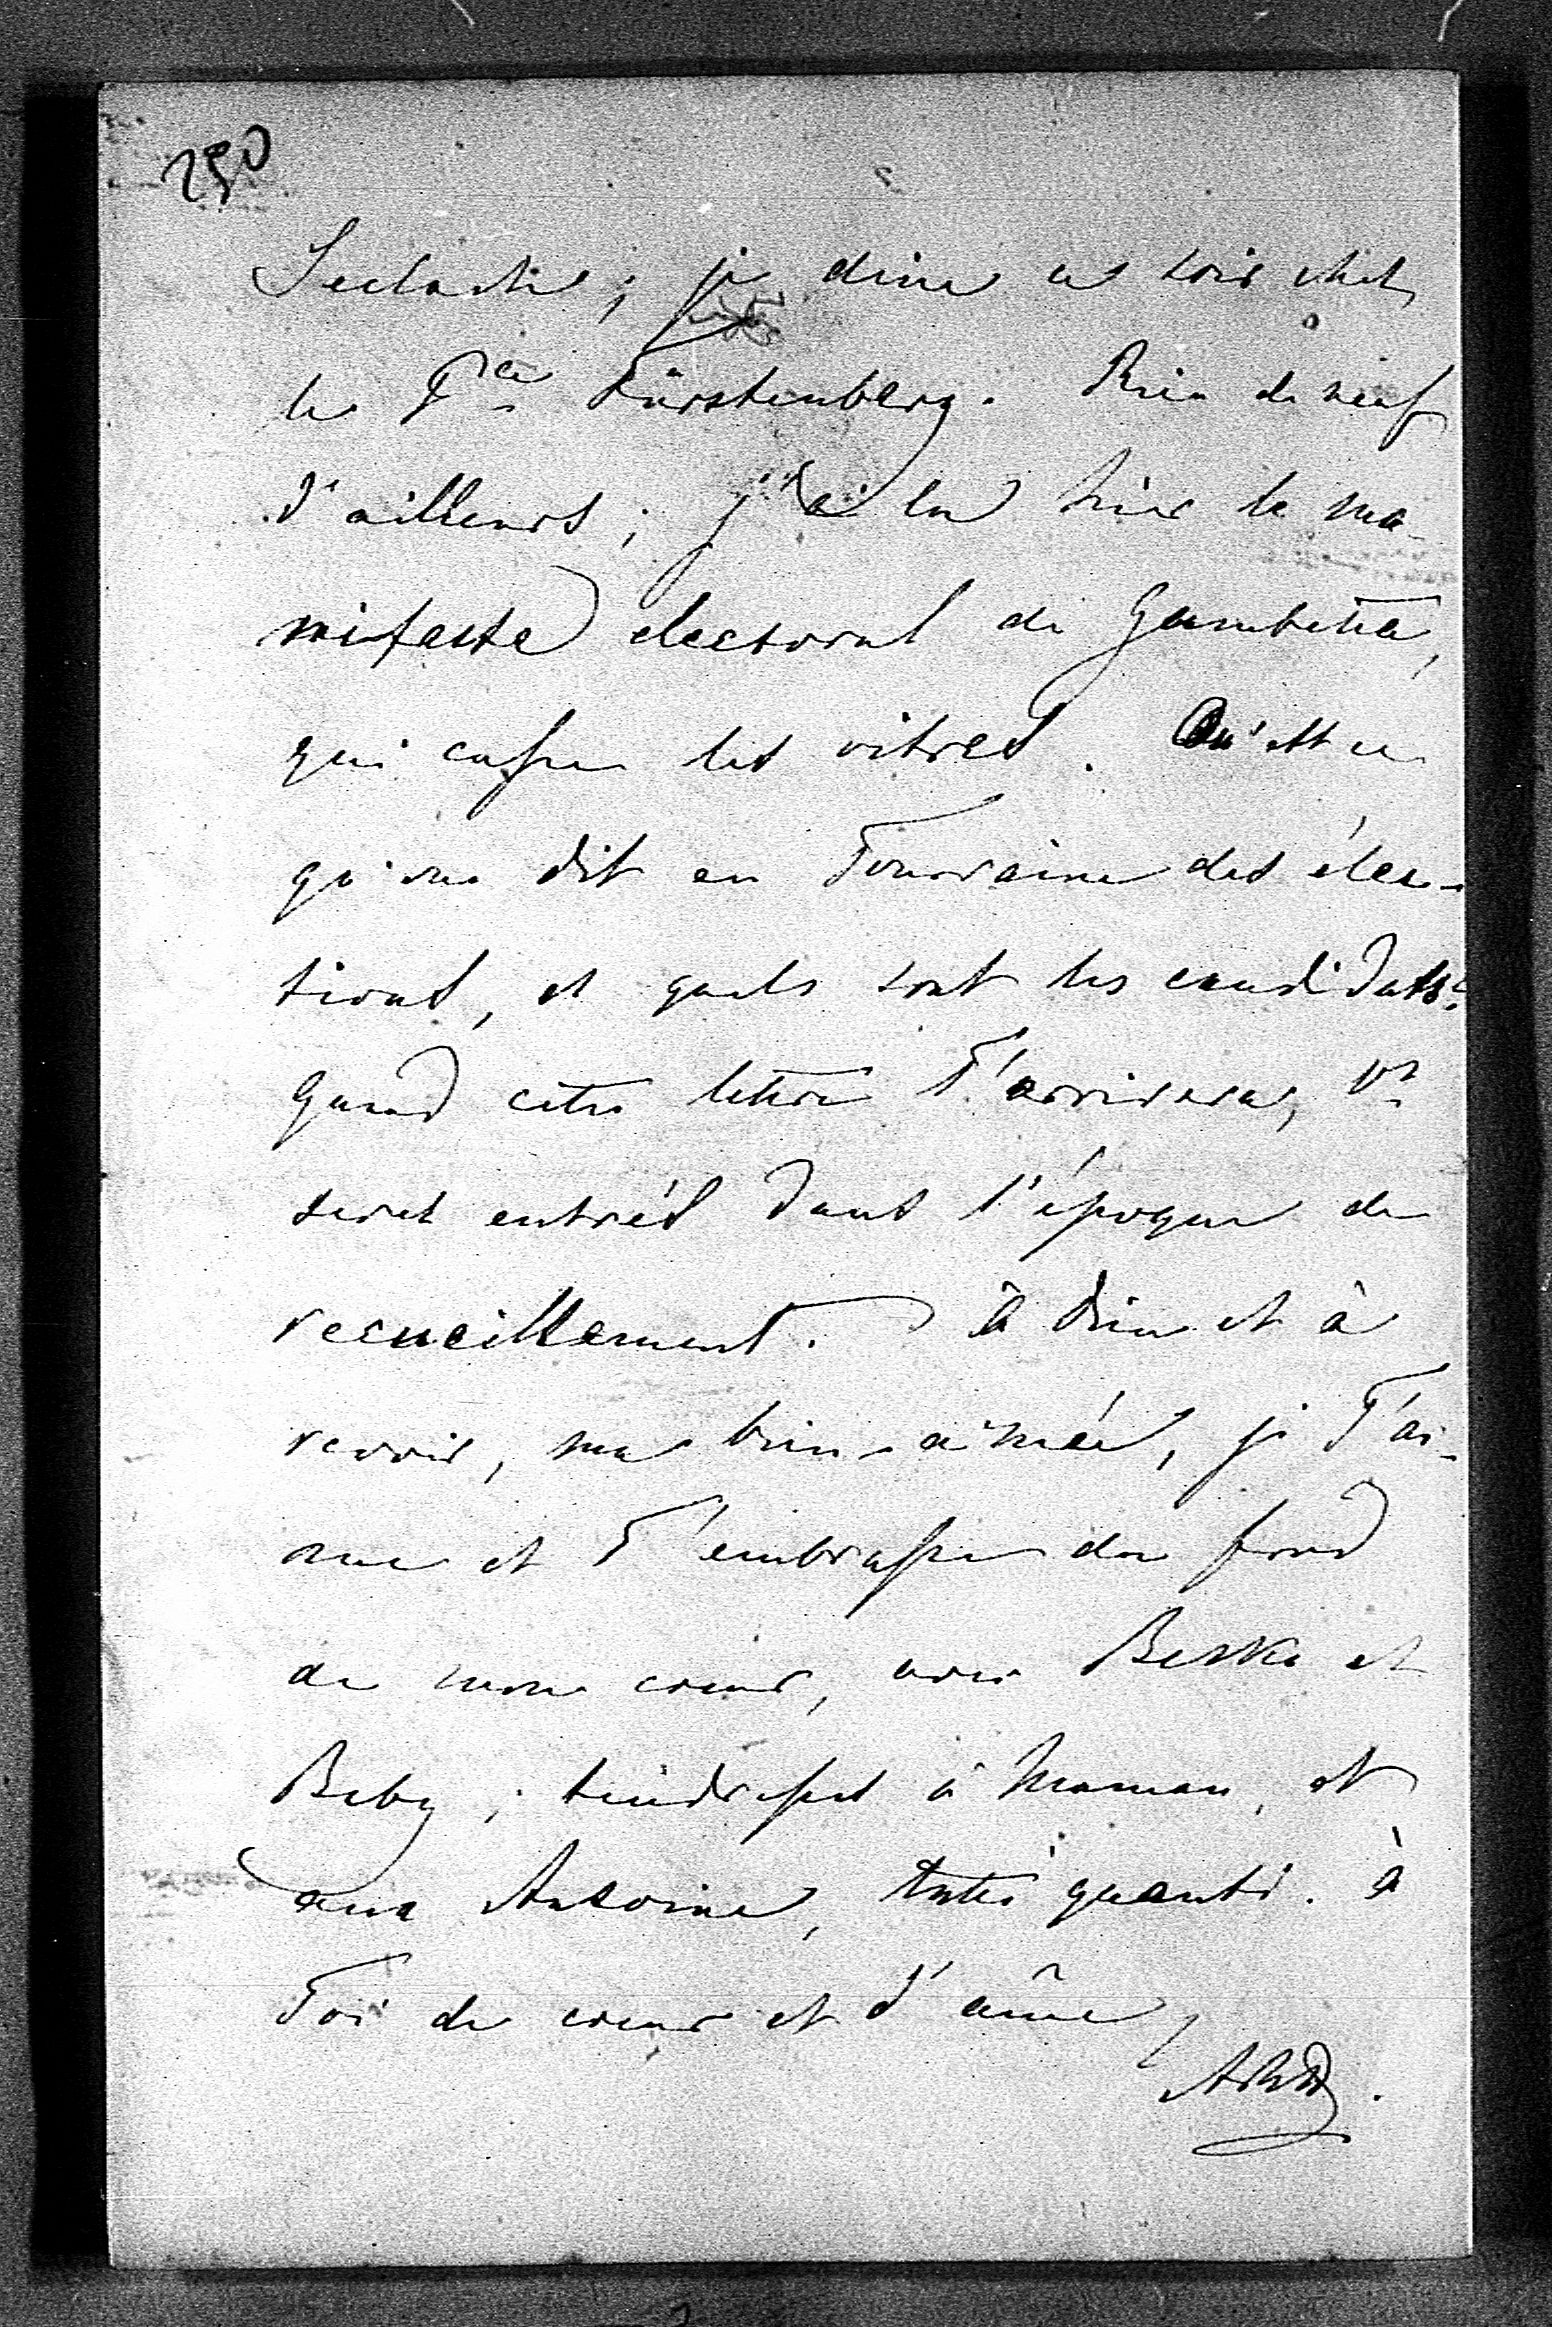 290
je dine ce soir chez
le Pce Fürstenberg. Rien de neuf
d'ailleurs; j'ai lu hier le ma-
nifeste electoral de Gambetta,
qui casse les vitres. Qu'est ce
qu'on dit en Touraine des élec-
tions, et quels sont les candidats?
Quand cette lettre t'arrivera, vs
serez entrés dans l'époque de
recueillement. à Dieu et à
revoir, ma bien-aimée, je T'ai-
me et T'embrasse du fond
de mon cœur, avec Beska et
Beby; tendresses à Maman, et
aux Antoine, tutti quanti. à
Toi de cœur et d'âme,